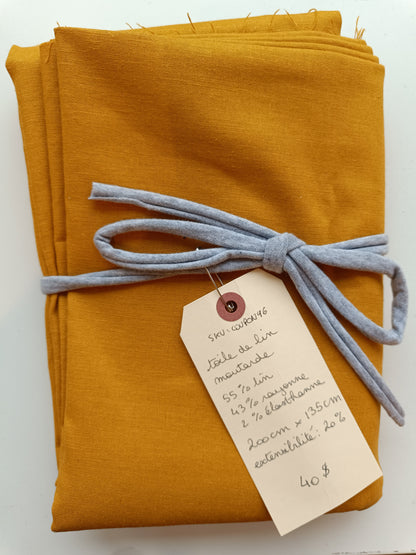 SKU: COUPON46
toile de lin
moutarde
55% lin
43% rayonne
2% élasthanne
200cm x 135cm
extensibilité: 20%
40$